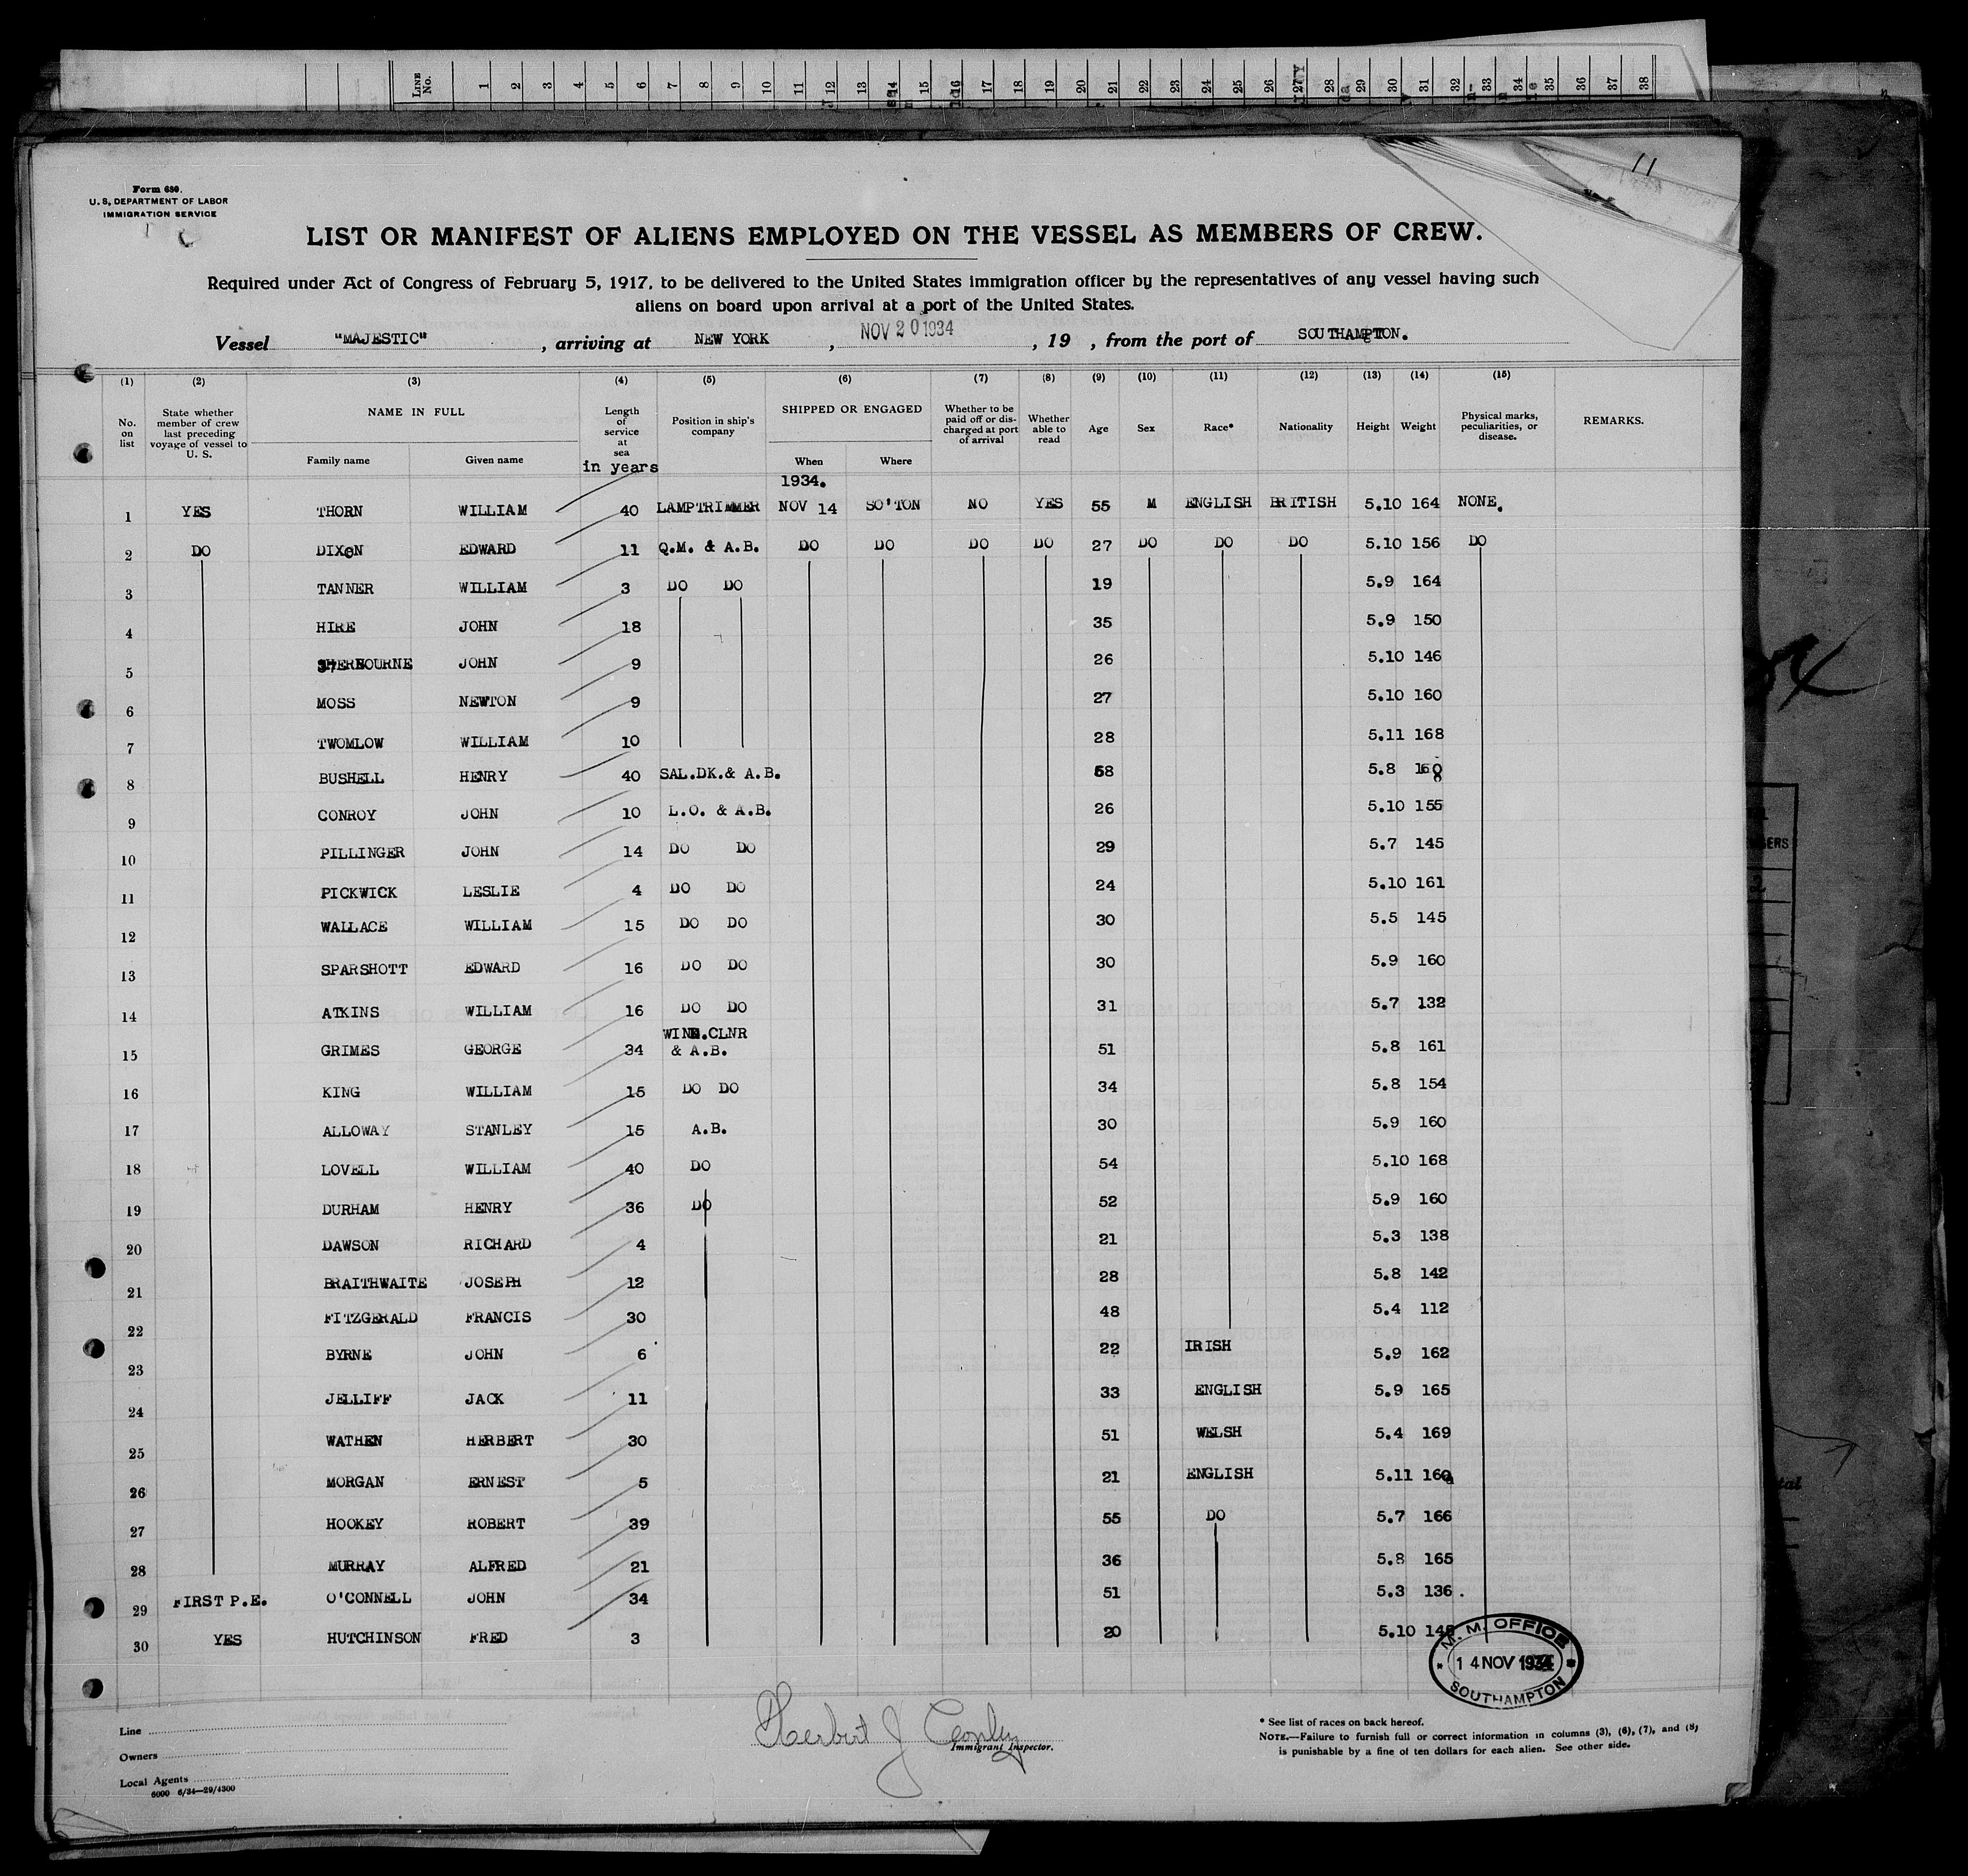 LINE No. 1 2 3 4 5 6 7 8 9 10 11 12 13 14 15 16 17 18 19 20 21 22 23 24 25 26 27 28 29 30 31 32 33 34 35 36 37 38
11
Form 680.
U. S. DEPARTMENT OF LABOR
IMMIGRATION SERVICE
LIST OR MANIFEST OF ALIENS EMPLOYED ON THE VESSEL AS MEMBERS OF CREW.
Required under Act of Congress of February 5, 1917, to be delivered to the United States immigration officer by the representatives of any vessel having such
aliens on board upon arrival at a port of the United States.
Vessel "MAJESTIC", arriving at NEW YORK, NOV 20 1934, 19 , from the port of SOUTHAMPTON.
(1) (2) (3) (4) (5) (6) (7) (8) (9) (10) (11) (12) (13) (14) (15)
No. on list State whether member of crew last preceding voyage of vessel to U. S. NAME IN FULL Length of service at sea Position in ship's company SHIPPED OR ENGAGED Whether to be paid off or discharged at port of arrival Whether able to read Age Sex Race* Nationality Height Weight Physical marks, peculiarities, or disease. REMARKS.
Family name Given name in years When Where
1934.
1 YES THORN WILLIAM 40 LAMPTRIMMER NOV 14 SO'TON NO YES 55 M ENGLISH BRITISH 5.10 164 NONE.
2 DO DIXON EDWARD 11 Q.M. & A.B. DO DO DO DO 27 DO DO DO 5.10 156 DO
3 TANNER WILLIAM 3 DO DO 19 5.9 164
4 HIRE JOHN 18 35 5.9 150
5 SHERBOURNE JOHN 9 26 5.10 146
6 MOSS NEWTON 9 27 5.10 160
7 TWOMLOW WILLIAM 10 28 5.11 168
8 BUSHELL HENRY 40 SAL.DK.& A.B. 58 5.8
9 CONROY JOHN 10 L.O. & A.B. 26 5.10 155
10 PILLINGER JOHN 14 DO DO 29 5.7 145
11 PICKWICK LESLIE 4 DO DO 24 5.10 161
12 WALLACE WILLIAM 15 DO DO 30 5.5 145
13 SPARSHOTT EDWARD 16 DO DO 30 5.9 160
14 ATKINS WILLIAM 16 DO DO 31 5.7 132
15 GRIMES GEORGE 34 WIND.CLNR & A.B. 51 5.8 161
16 KING WILLIAM 15 DO DO 34 5.8 154
17 ALLOWAY STANLEY 15 A.B. 30 5.9 160
18 LOVELL WILLIAM 40 DO 54 5.10 168
19 DURHAM HENRY 36 DO 52 5.9 160
20 DAWSON RICHARD 4 21 5.3 138
21 BRAITHWAITE JOSEPH 12 28 5.8 142
22 FITZGERALD FRANCIS 30 48 5.4 112
23 BYRNE JOHN 6 22 IRISH 5.9 162
24 JELLIFF JACK 11 33 ENGLISH 5.9 165
25 WATHEN HERBERT 30 51 WELSH 5.4 169
26 MORGAN ERNEST 5 21 ENGLISH 5.11 160
27 HOOKEY ROBERT 39 55 DO 5.7 166
28 MURRAY ALFRED 21 36 5.8 165
29 FIRST P.E. O'CONNELL JOHN 34 51 5.3 136.
30 YES HUTCHINSON FRED 3 20 5.10 145
M. M. OFFICE
14 NOV 1934
SOUTHAMPTON
Line
Owners
Local Agents
6000 6/34—29/4300
Herbert J
Immigrant Inspector.
* See list of races on back hereof.
NOTE.—Failure to furnish full or correct information in columns (3), (6), (7), and (8)
is punishable by a fine of ten dollars for each alien. See other side.